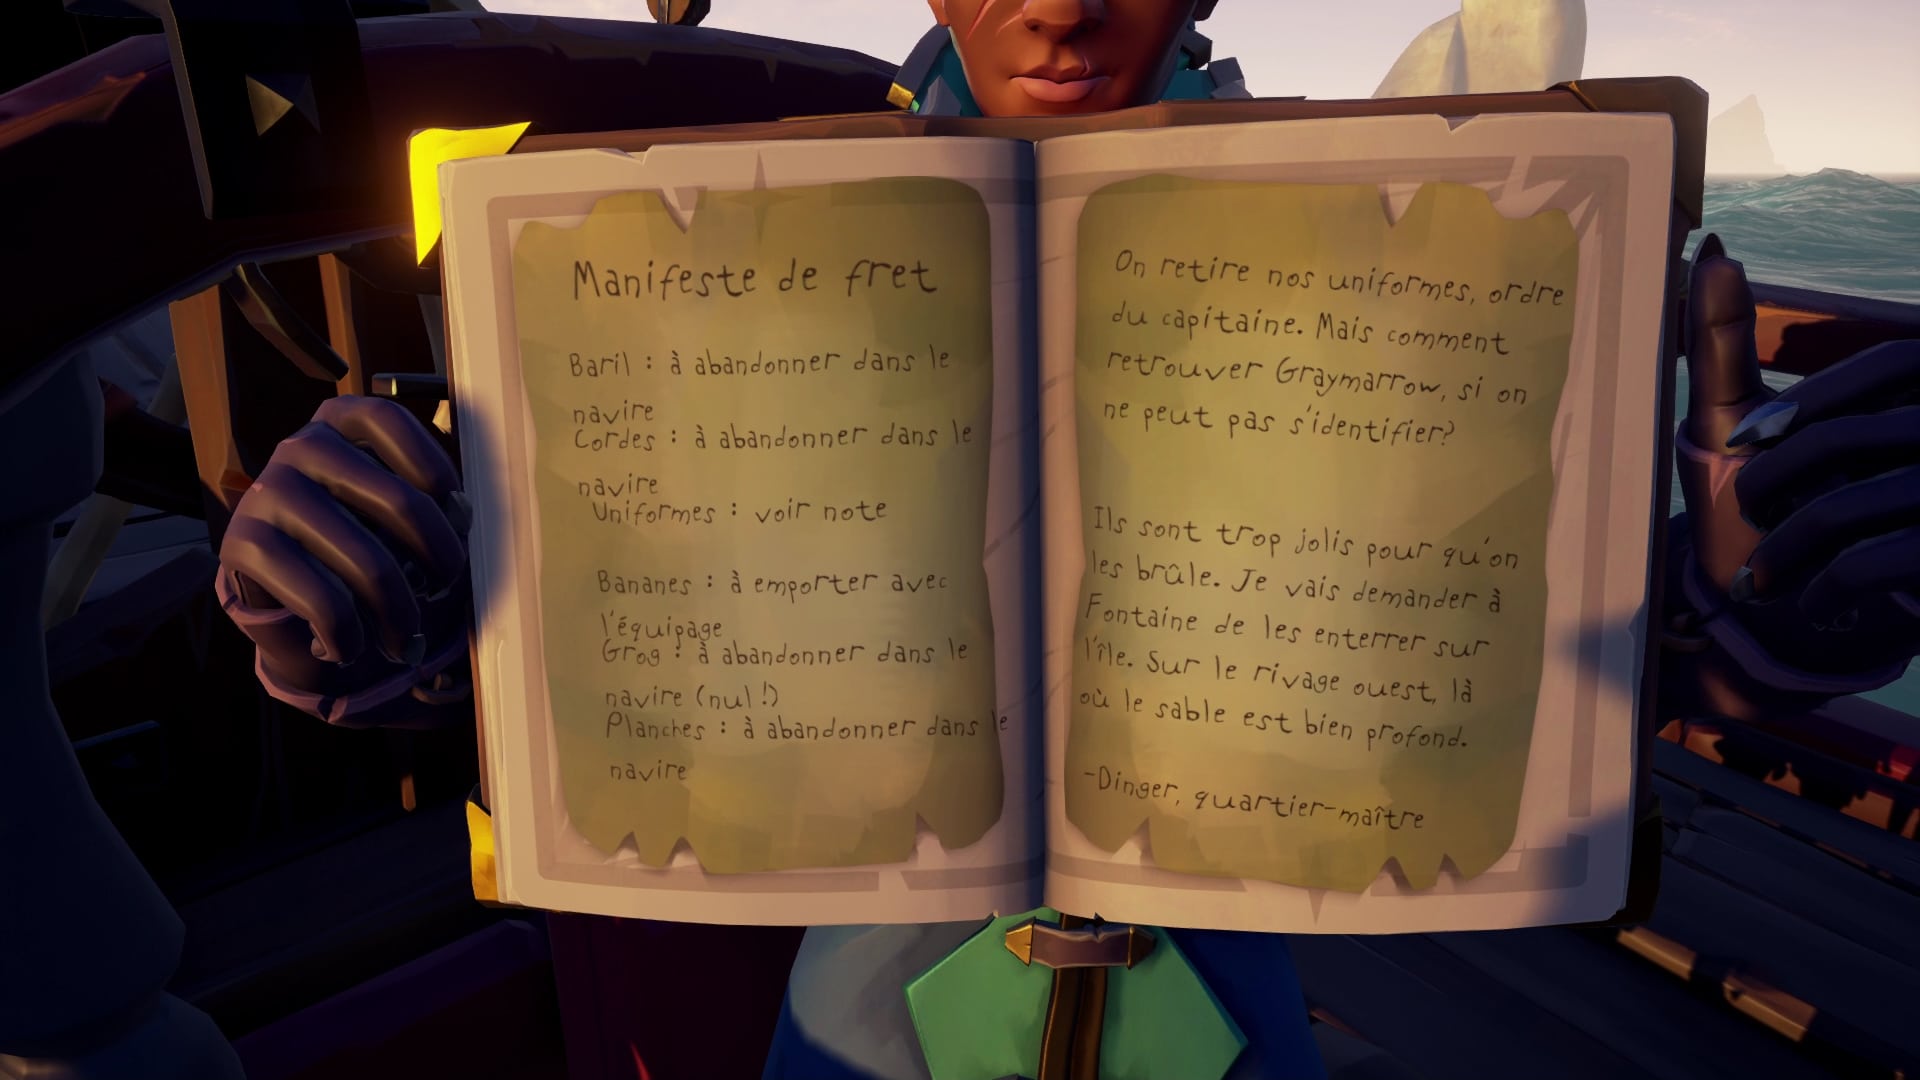 Manifeste de fret
Baril : à abandonner dans le
navire
Cordes : à abandonner dans le
navire
Uniformes : voir note
Bananes : à emporter avec
l'équipage
Grog : à abandonner dans le
navire (nul !)
Planches : à abandonner dans le
navire
On retire nos uniformes, ordre
du capitaine. Mais comment
retrouver Graymarrow, si on
ne peut pas s'identifier?
Ils sont trop jolis pour qu'on
les brûle. Je vais demander à
Fontaine de les enterrer sur
l'île. Sur le rivage ouest, là
où le sable est bien profond.
-Dinger, quartier-maître